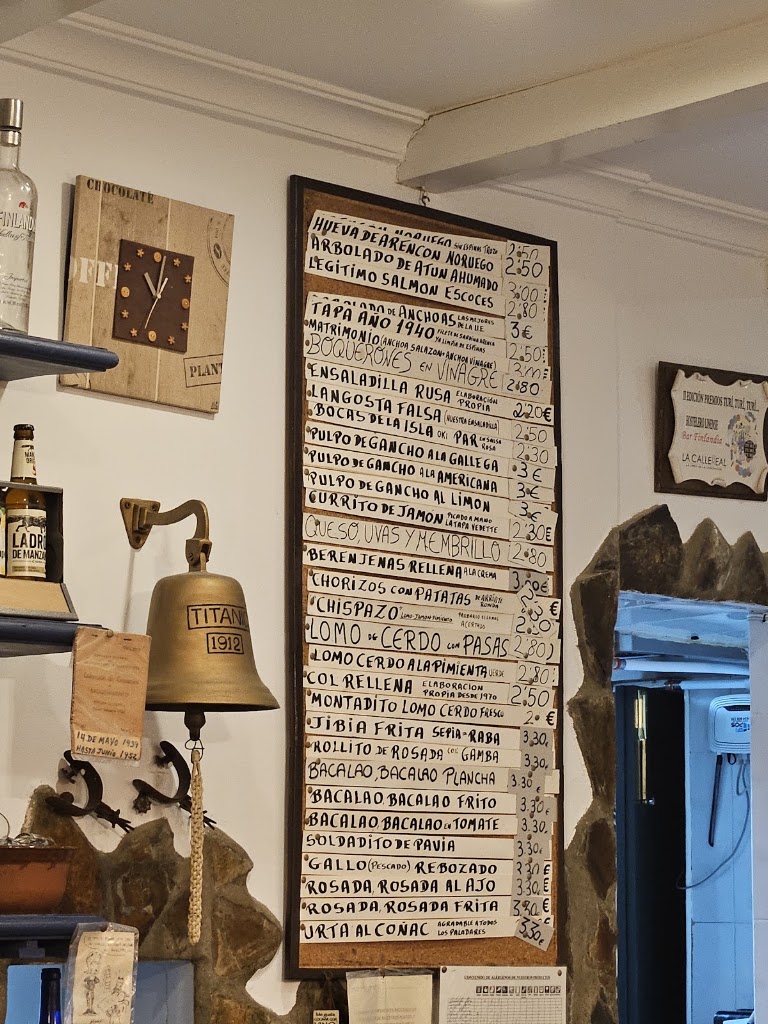 CHOCOLATE
OFF
PLANT
FINLAND
HUEVA DE ARENCON NORUEGO 2'50
ARBOLADO DE ATUN AHUMADO
LEGITIMO SALMON ESCOCES 3'00
2'80
DE ANCHOAS LAS MEJORES DE LA U.E. 3€
TAPA AÑO 1940 YA LIMPIA DE ESPINAS
MATRIMONIO (ANCHOA SALAZON+ANCHOA VINAGRE) 2'50
BOQUERONES EN VINAGRE 2'80
ENSALADILLA RUSA ELABORACION PROPIA 2'20€
LANGOSTA FALSA (NUESTRA ENSALADILLA) 2'50
BOCAS DE LA ISLA OK! PAR LA SALSA ROSA 2'30
PULPO DE GANCHO A LA GALLEGA 3€
PULPO DE GANCHO A LA AMERICANA 3€
PULPO DE GANCHO AL LIMON 3€
CURRITO DE JAMON PICADO A MANO LA TAPA VEDETTE 2'30€
QUESO, UVAS Y MEMBRILLO 2'80
BERENJENAS RELLENA A LA CREMA
CHORIZOS CON PATATAS DE ARRIATE RONDA
CHISPAZO LOMO-JAMON-PIMIENTO
LOMO DE CERDO CON PASAS 2'80
LOMO CERDO A LA PIMIENTA VERDE 2'80
COL RELLENA ELABORACION PROPIA DESDE 1970 2'50
MONTADITO LOMO CERDO FRESCO 2'€
JIBIA FRITA SEPIA-RABA 3,30€
ROLLITO DE ROSADA CON GAMBA 3.30€
BACALAO, BACALAO PLANCHA 3.30€
BACALAO, BACALAO FRITO 3.30€
BACALAO, BACALAO EN TOMATE 3.30€
SOLDADITO DE PAVIA 3.30€
GALLO (PESCADO) REBOZADO 3.30€
ROSADA, ROSADA AL AJO 3.30€
ROSADA, ROSADA FRITA 3.30€
URTA AL COÑAC AGRADABLE A TODOS LOS PALADARES 3.30€
II EDICIÓN PREMIOS TURÍ, TURÍ, TURÍ...
HOSTELERO LINENSE
Bar Finlandia
LA CALLE REAL
LADRÓN
DE MANZANAS
TITANIC
1912
14 DE MAYO 1939
HASTA JUNIO 1952
CONTENIDO DE ALÉRGENOS DE NUESTROS PRODUCTOS